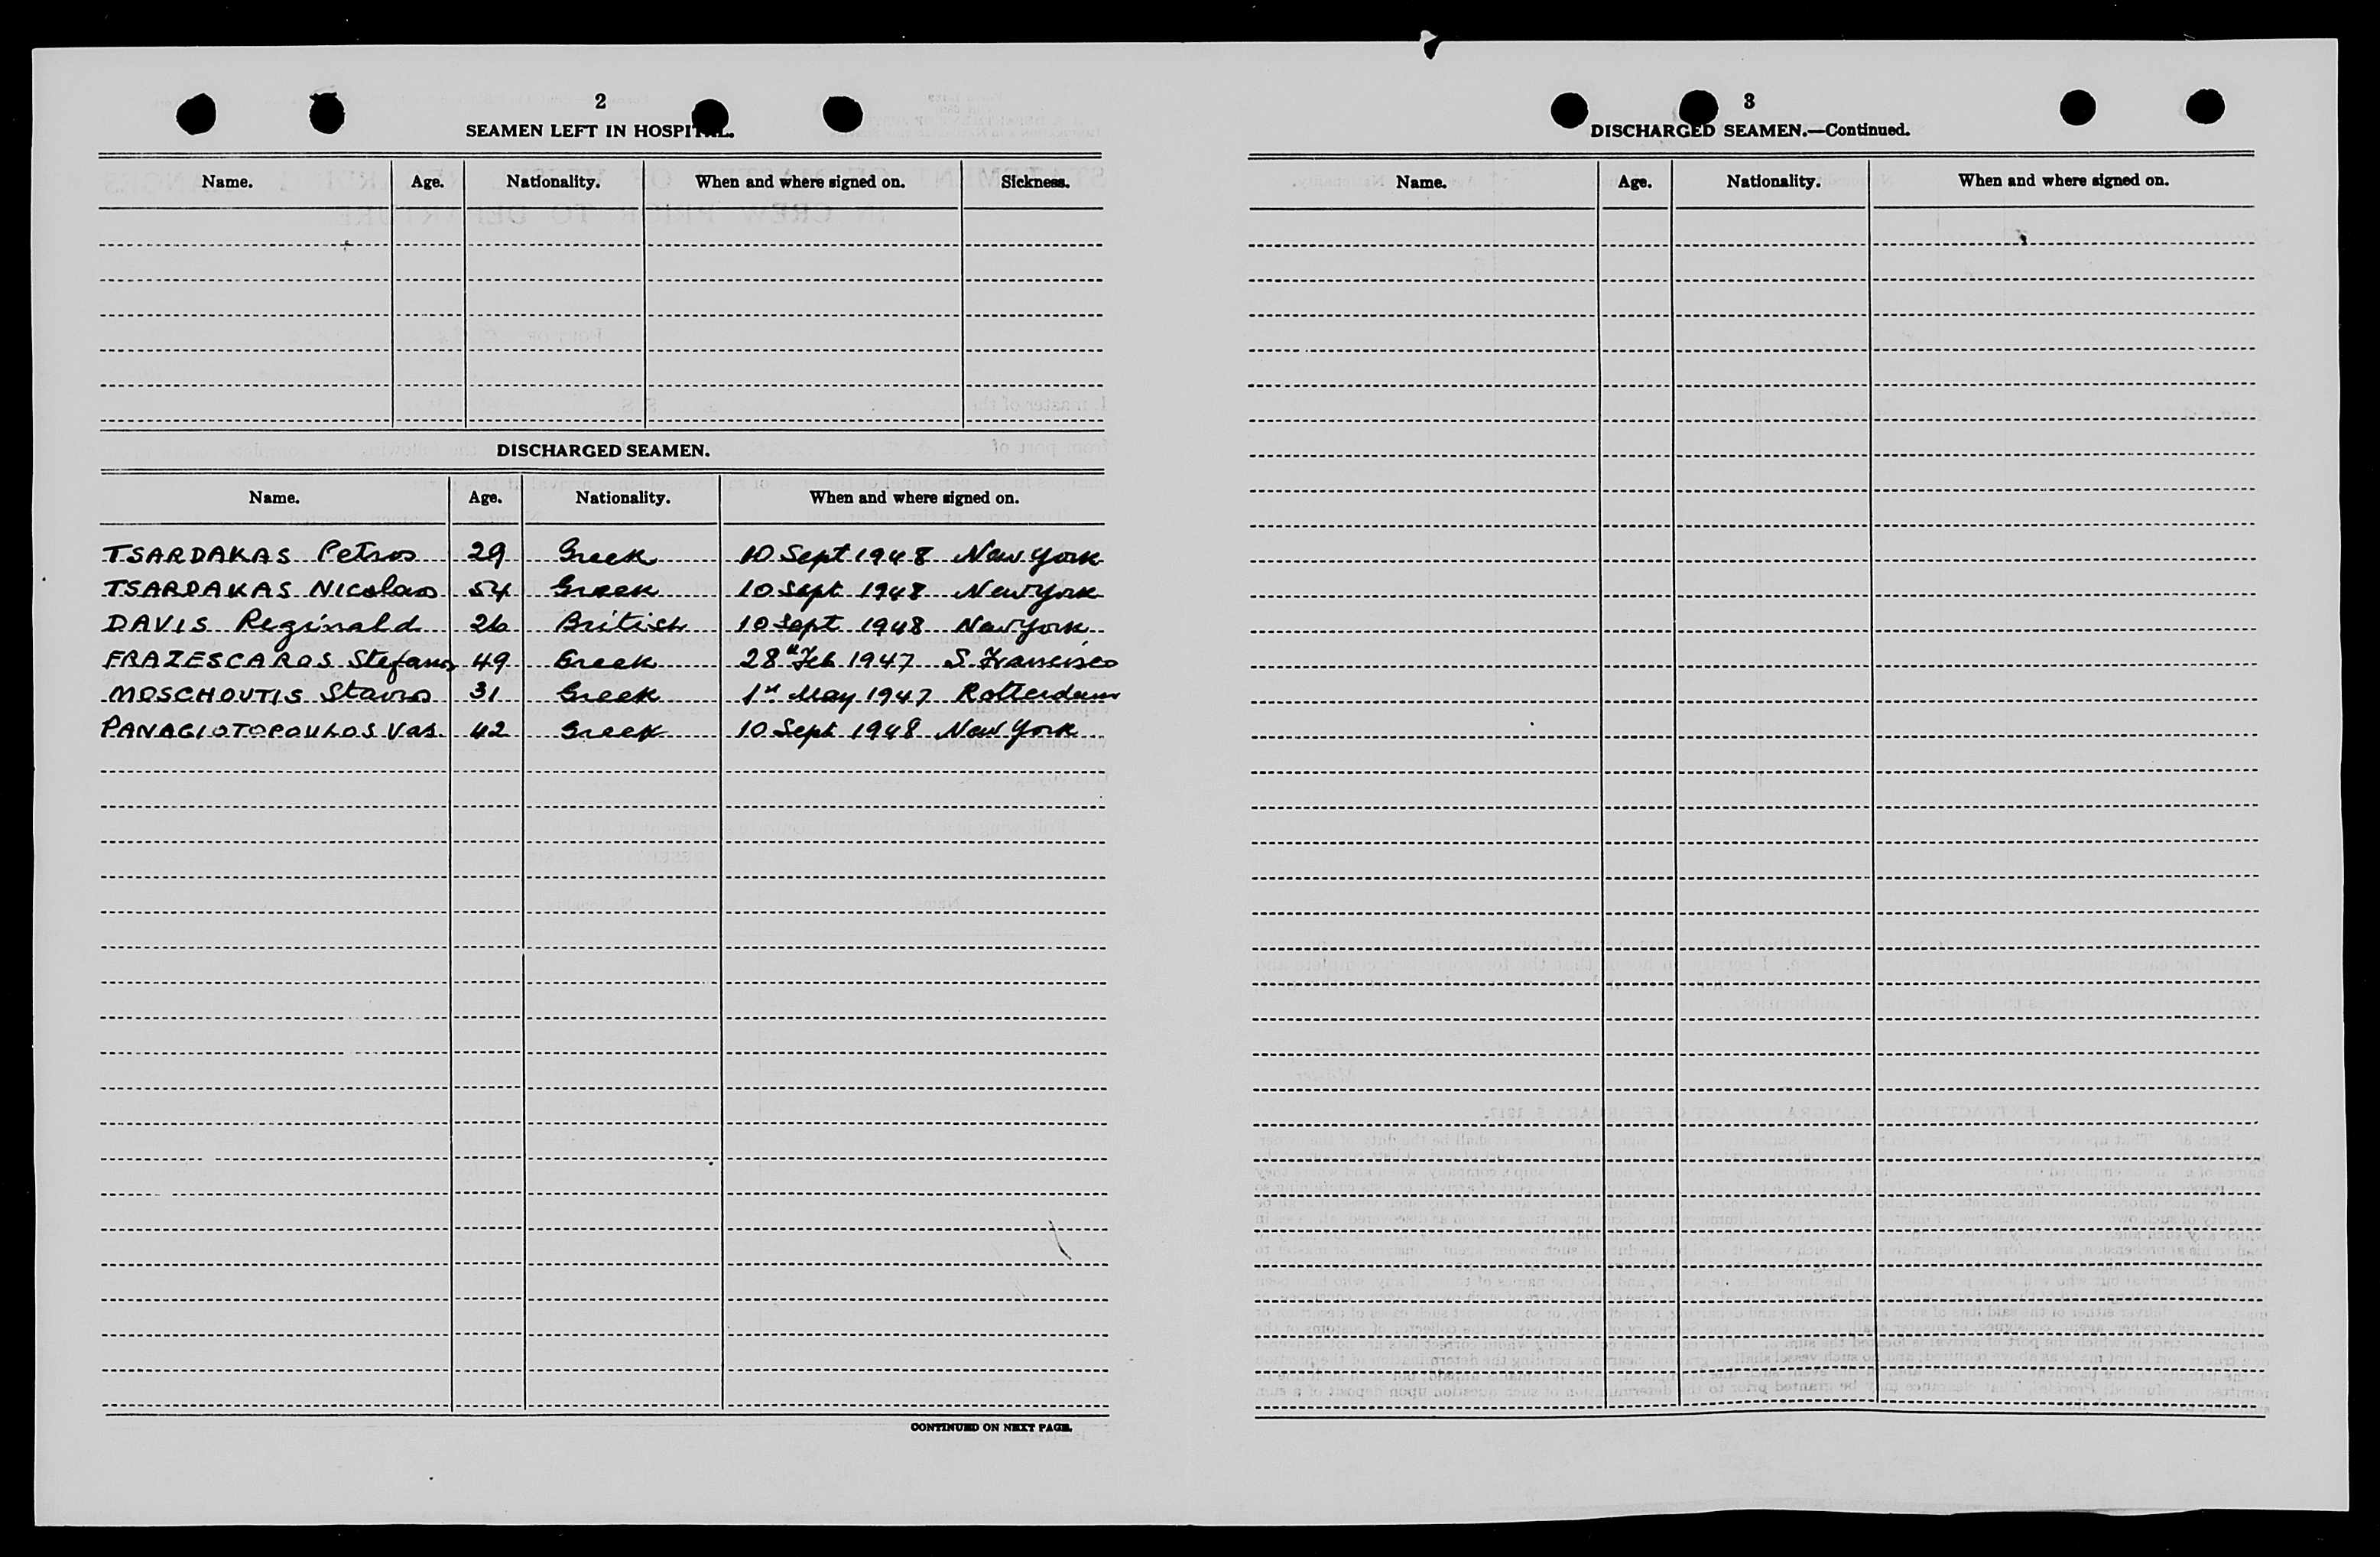 2
SEAMEN LEFT IN HOSPITAL.
Name. Age. Nationality. When and where signed on. Sickness.
DISCHARGED SEAMEN.
Name. Age. Nationality. When and where signed on.
TSARDAKAS Petros 29 Greek 10 Sept 1948 New York
TSARDAKAS Nicolaos 54 Greek 10 Sept 1948 New York
DAVIS Reginald 26 British 10 Sept 1948 New York
FRAZESCAROS Stefanos 49 Greek 28th Feb 1947 S. Francisco
MOSCHOUTIS Stavros 31 Greek 1st May 1947 Rotterdam
PANAGIOTOPOULOS Vas. 42 Greek 10 Sept 1948 New York
CONTINUED ON NEXT PAGE.
3
DISCHARGED SEAMEN.—Continued.
Name. Age. Nationality. When and where signed on.